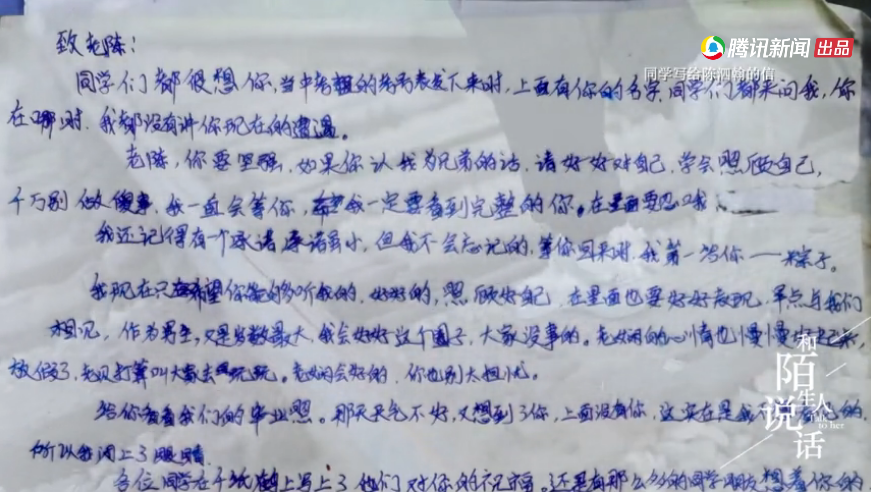 腾讯新闻 出品
同学写给陈泗翰的信
致老陈：
同学们都很想你，当中考报的考号表发下来时，上面有你的名字，同学们都来问我，你
在哪时，我都没有讲你现在的遭遇。
老陈，你要坚强，如果你认我为兄弟的话，请好好对自己，学会照顾自己，
千万别做傻事，我一直会等你，我一定要看到完整的你。在里面要忍
我还记得有一个承诺，承诺虽小，但我不会忘记的，等你回来时，我第一给你——粽子。
我现在只希望你能够听我的，好好的，照顾好自己，在里面也要好好表现，早点与我们
相见，作为男生，又是岁数最大，我会好好这个圈子，大家没事的。老的心情也慢慢好起来，
放假了，老贝打算叫大家去玩玩。老会好的，你也别太担忧。
给你看看我们的毕业照。那天天气不好，又想到了你，上面没有你，这实在是我不
所以我闭上了眼睛
各位同学在千纸鹤上写上了他们对你的祝福。还是有那么多的同学朋友想着你的
和陌生人说话
to her